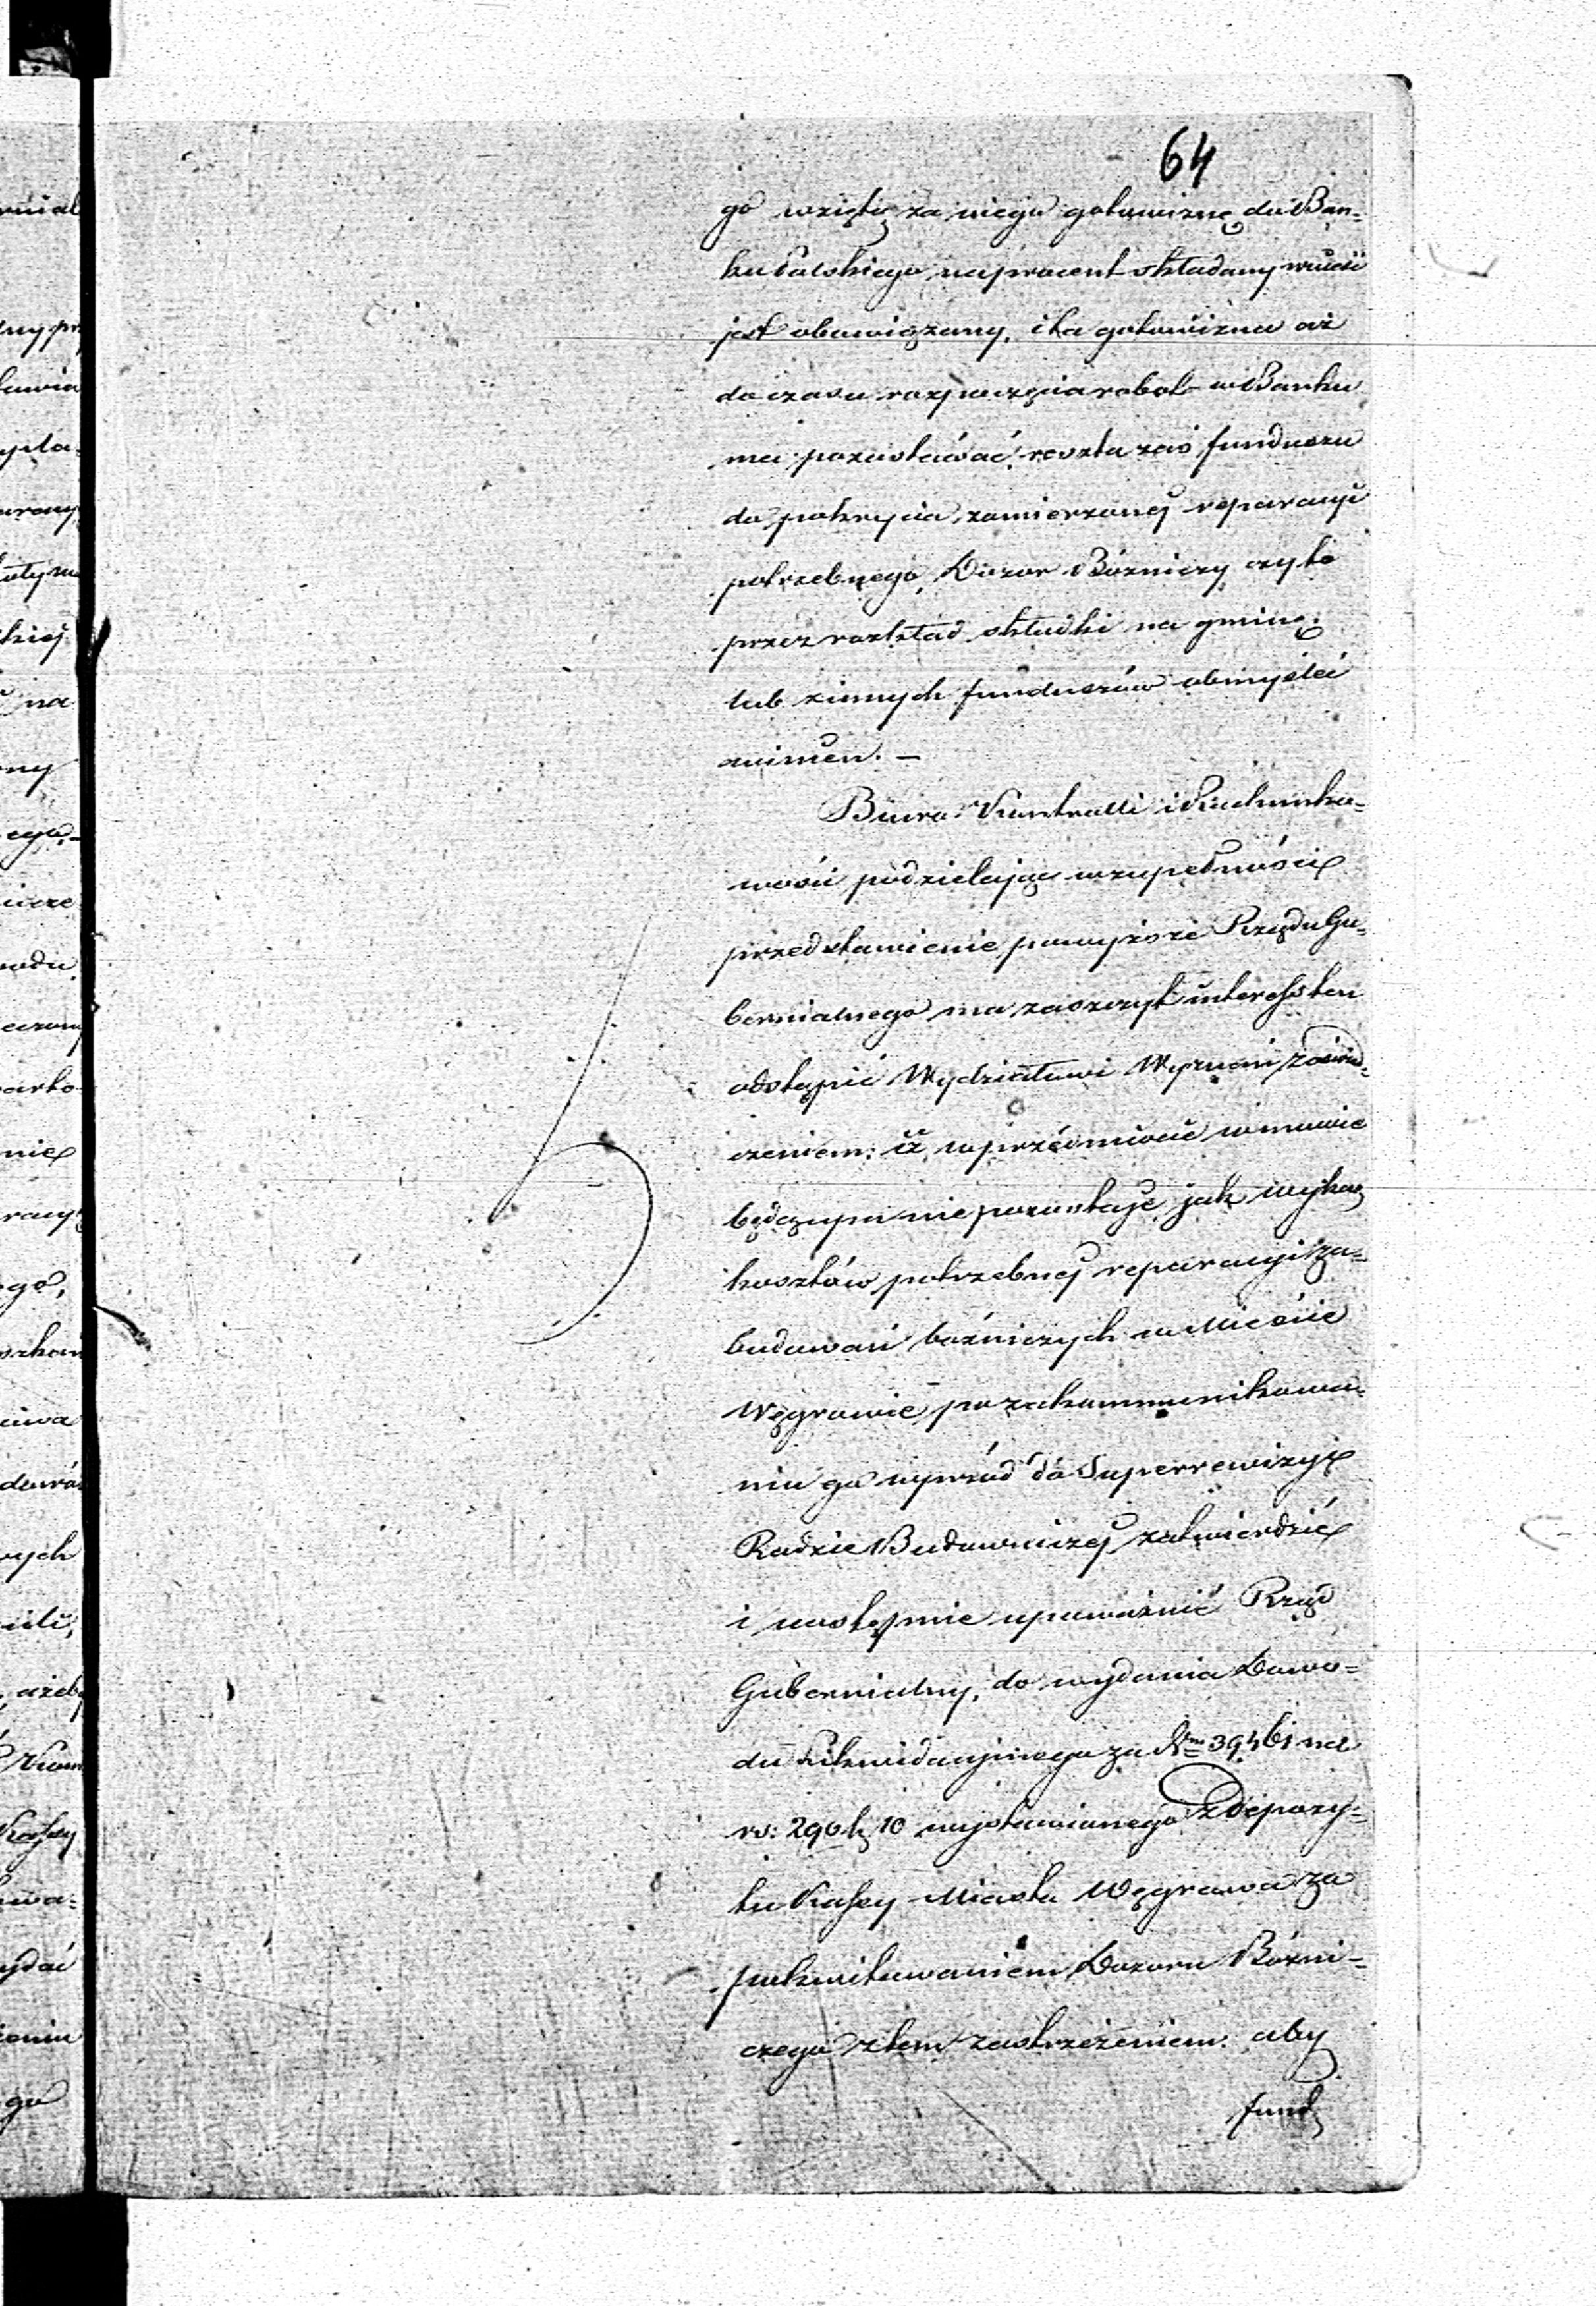 64
go wziętą za niego gotowiznę do Ban-
ku Polskiego na procent składany wnieść
jest obowiązany, i ta gotowizna aż
do czasu rozpoczęcia robót w Banku
ma pozostawać, reszta zaś funduszu
do pokrycia zamierzonej reparacyi
potrzebnego, Dozór Bóżniczy czyto
przez rozkład składki na gminę,
lub z innych funduszów obmyśleć
winien. –
Biuro Kontrolli i Rachunko-
wości podzielając w zupełności
przedstawienie powyższe Rządu Gu-
bernialnego ma zaszczyt interess ten
odstąpić Wydziałowi Wyznań z oświad-
czeniem: iż w przedmiocie w mowie
będącym nie pozostaje, jak wykaz
kosztów potrzebnej reparacyi za-
budowań bóżniczych w Mieście
Węgrowie, po zakommunikowa-
niu go wprzód do Superrewizyi
Radzie Budowniczej, zatwierdzić
i następnie upoważnić Rząd
Gubernialny, do wydania Dowo-
du Likwidacyjnego za Nrm 39461 na
rs: 290 k. 10 wystawionego z Depozy-
tu Kassy Miasta Węgrowa za
pokwitowaniem Dozoru Bóżni-
czego z tem zastrzeżeniem: aby
fund